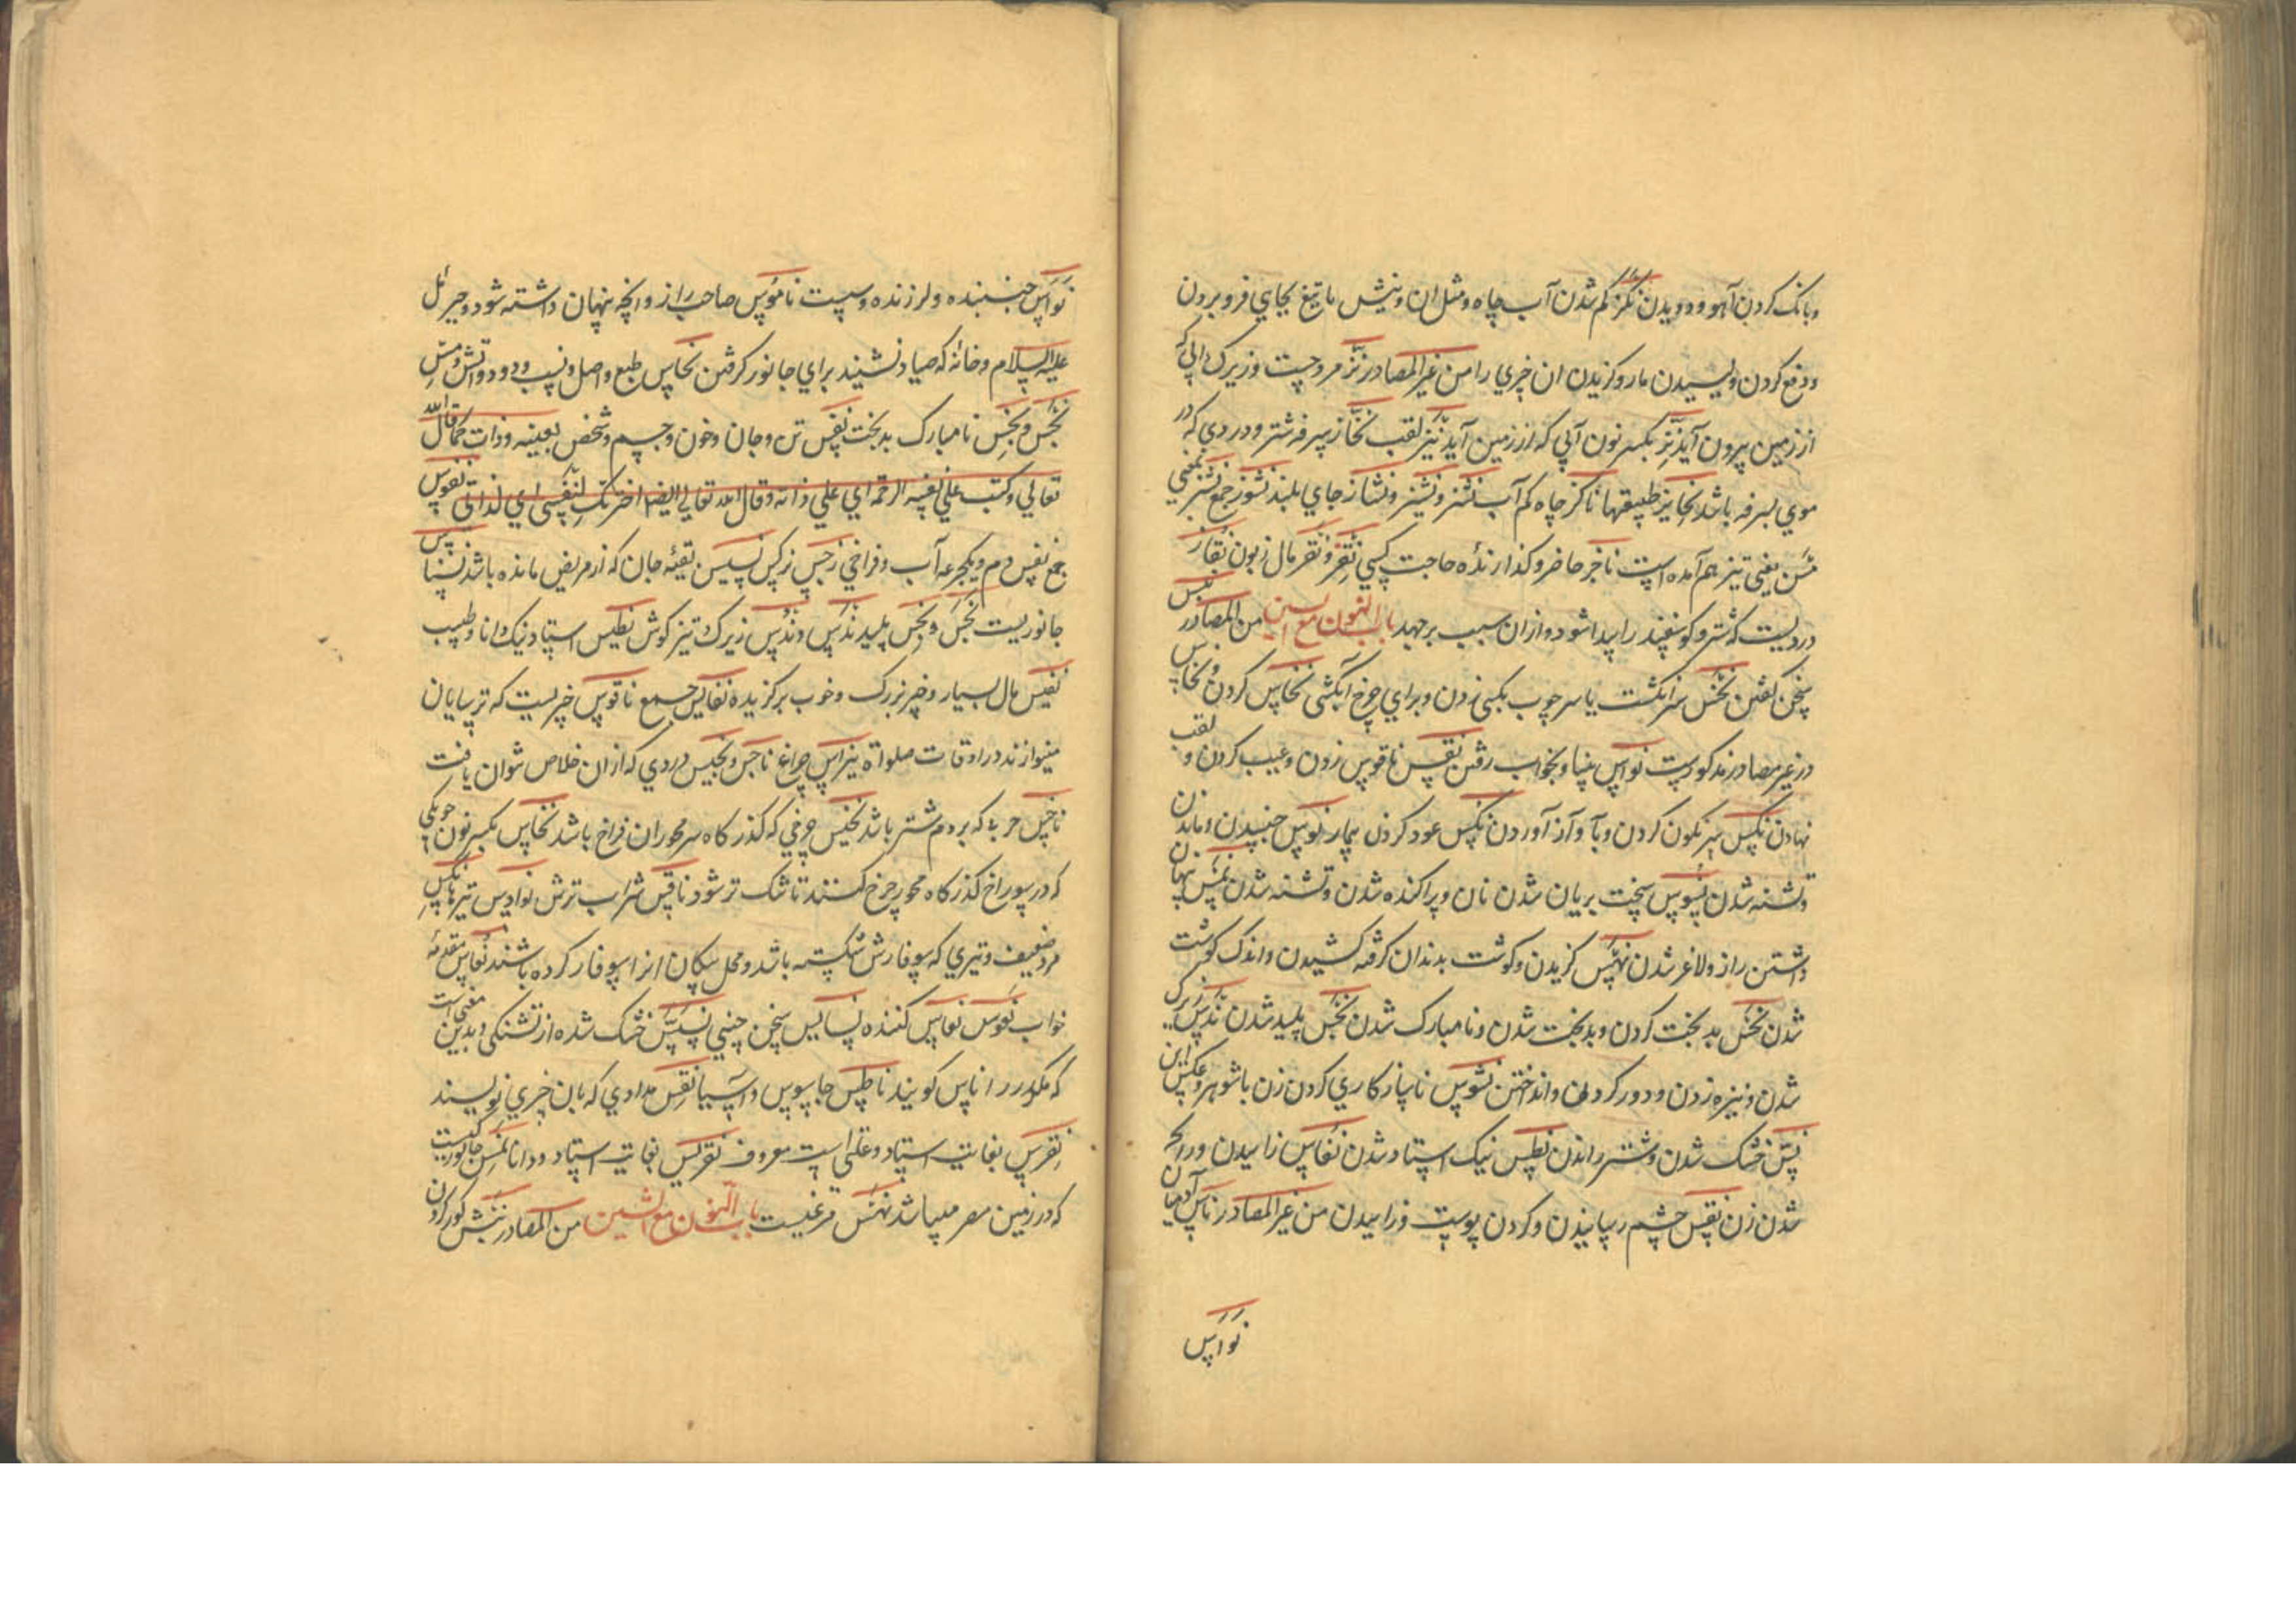 و بانک کردن آهو و دویدن نکز کم شدن آب چاه و مثل ان و نیش یا تیغ بجایي فرو بردن
و دفع کردن و لیسیدن مار و کزیدن ان چیزي را من غیر المصادر نز مرد چست و زیرک و ابي که
از زمین بیرون آید نز بکسر نون آبي که از زمین آید نیز لقب نحاز سرفه شتر و دردي که در
موي لسرفه باشد نحایز طبیعتها ناکز چاه کم آب نشز و نشیز و نشاز جاي بلند نشوز جمع نشز بمعني
مسن یعني تیز هم آمده است ناجز حاضر و کذارنده حاجت کسي نقز و نقز مال زبون نقاز
دردیست که شتر و کوسفند را پیدا شود و ازان سبب برجهد باب النون مع السین من المصادر نبس
سخن کفتن نخس سر انکشت یا سر چوب بکسي زدن و براي چرخ آبکشي نخاس کردن و نخاس
در غیر مصادر مذکورست نواس بنیاد بخواب رفتن نقس ناقوس زدن و عیب کردن و لقب
نهادن نکس سر نکون کردن و باز آوردن نکس عود کردن بیمار نوس جنبیدن و ماندن
و تشنه شدن نسوس سخت بریان شدن نان و پراکنده شدن و تشنه شدن نمس پنهان
داشتن راز و لاغر شدن نهس کزیدن و کوشت بدندان کرفته کشیدن و اندک کوشت
شدن نحس بد بخت کردن و بدبخت شدن و نامبارک شدن نجس پلید شدن ندس زیرک
شدن و نیزه زدن و دور کردن و انداختن نشوس ناسازکاري کردن زن با شوهر و عکس این
نس خشک شدن و شتر راندن نطس نیک استاد شدن نفاس زاییدن و
شدن زن نقس چشم رسانیدن و کردن پوست و زاییدن من غیر المصادر ناس آدمیان
نواس
نواس جنبنده و لرزنده و سست ناموس صاحب راز و انچه پنهان داشته شود و جبرئل
علیه السلام و خانه که صیاد نشیند براي جانور کرفتن نحاس طبع و اصل و نسب و دود و آتش و مس
نحس و نحس نامبارک بدبخت نفس تن و جان و خون و جسم و شخص بعینه و ذات کما قال الله
تعالي و کتب علي نفسه الرحمة اي علي ذاته و قال الله تعالي ایضا اخترتک لنفسي اي لذاتي نفوس
جمع نفس دم و یکجرعه آب و فراخي زجس زکس نسیس بقیه جان که از مریض مانده باشد نسناس
جانوریست نجس و نجس پلید ندس و ندس زیرک تیز کوش نطیس استاد نیک دانا و طبیب
نفیس مال بسیار و چیز بزرک و خوب برکزیده نفایس جمع ناقوس چیزیست که ترسایان
مینوازند در اوقات صلواة نبراس چراغ ناجس و نجیس دردي که از ان خلاص نتوان یافت
ناخس جربۀ که بر دم شتر باشد نخیس چرخي که کذرکاه سر محور ان فراخ باشد نخاس بکسر نون چوبکي
که در سوراخ کذرکاه محور چرخ کنند تا تنک تر شود ناقس شراب ترش نوادس تیرها نکس
مرد ضعیف و تیري که سوفارش شکسته باشد و محل پیکان انرا سوفار کرده باشند نعاس مقدمه
خواب نعوس نعاس کننده نسایس سخن چیني نسس خشک شده از تشنکي و بدین معني است
که مکه را ناس کویند ناطس جاسوس و آسیا نقس مدادي که بان چیزي نویسند
نقرس بغایت استاد و علتي است معروف نقریس بغایت استاد و دانا نمس جانوریست
که در زمین مصر میباشد نهس مرغیست باب النون مع الشین من المصادر نبش کور کردن